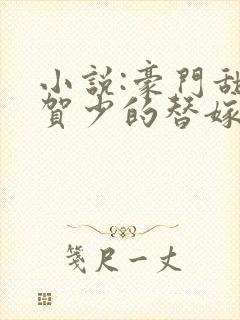 小說:豪門甜
賀少的替嫁
箋尺一丈